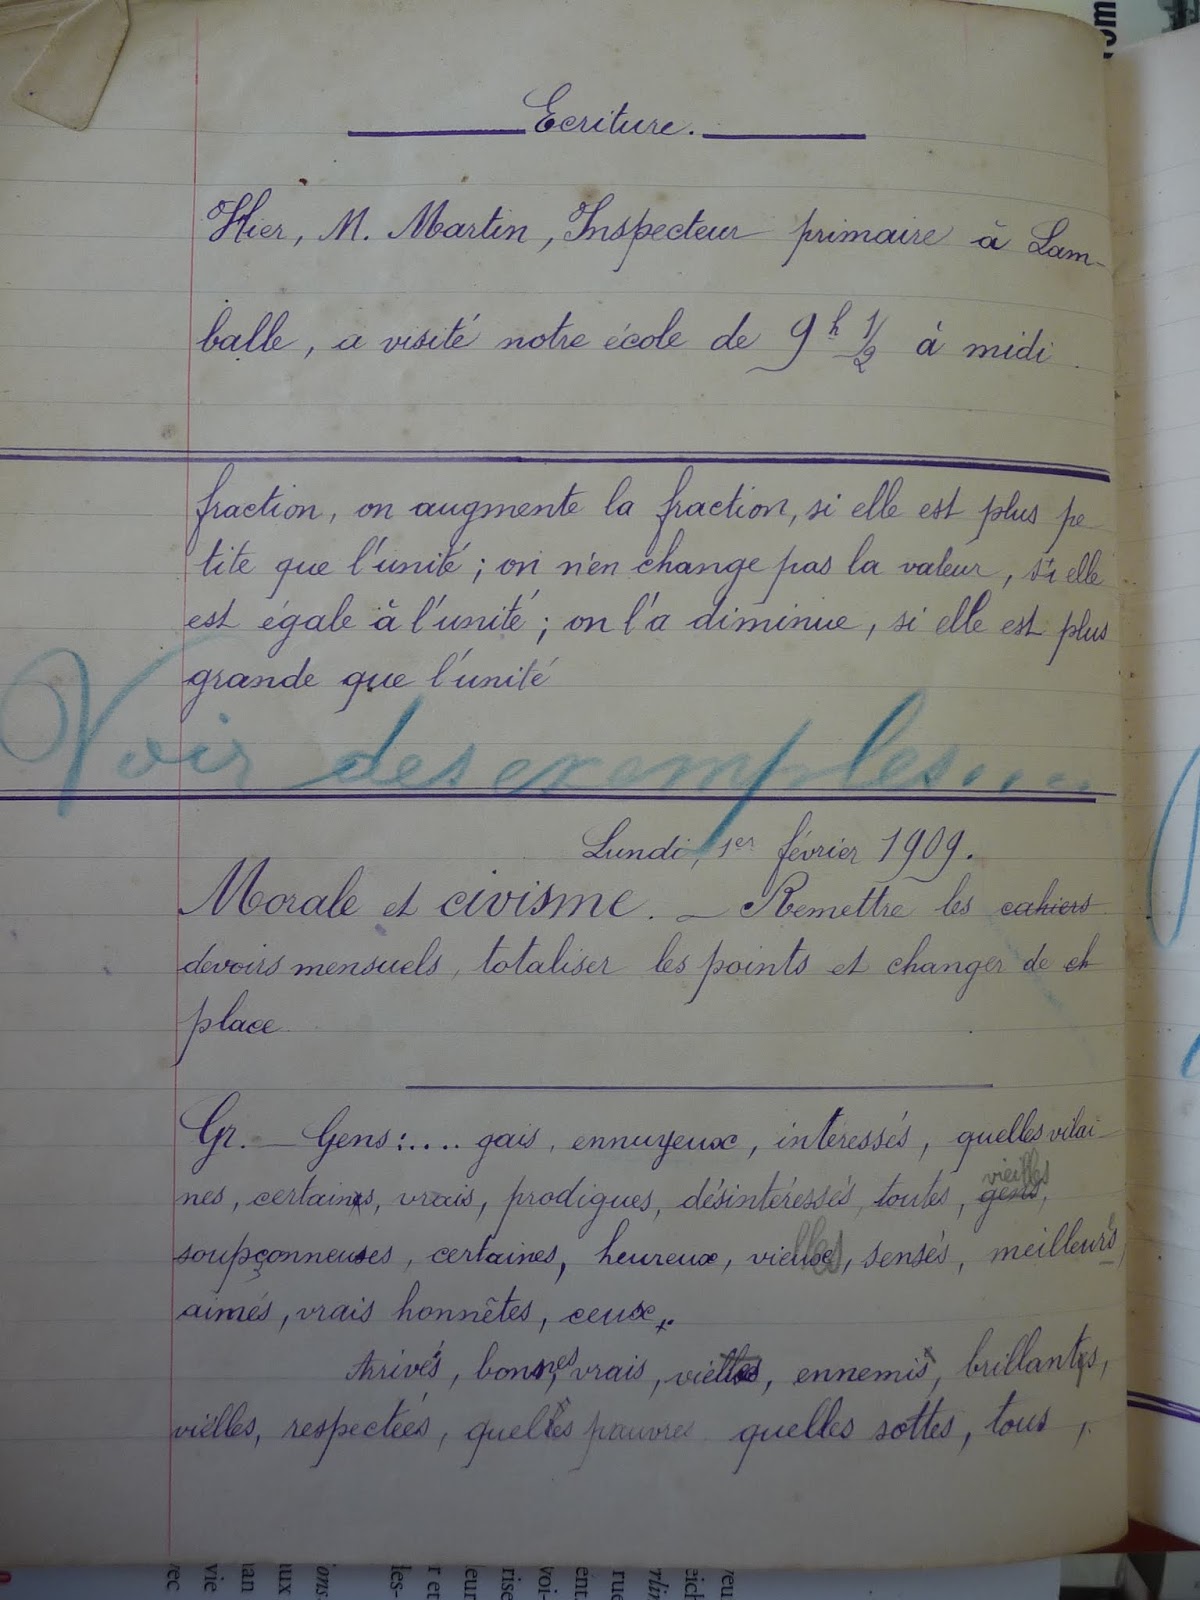 Ecriture.
Hier, M. Martin, Inspecteur primaire à Lam-
balle, a visité notre école de 9h 1/2 à midi
fraction, on augmente la fraction, si elle est plus pe-
tite que l'unité ; on n'en change pas la valeur, si elle
est égale à l'unité ; on l'a diminue, si elle est plus
grande que l'unité
Voir des exemples....
Lundi, 1er février 1909.
Morale et civisme. — Remettre les cahiers
devoirs mensuels, totaliser les points et changer de ch
place
Gr. — Gens :.... gais, ennuyeux, intéressés, quelles vilai-
nes, certaines, vrais, prodigues, désintéressés, toutes, gens, vieilles
soupçonneuses, certaines, heureux, vieilles, sensés, meilleurs,
aimés, vrais honnêtes, ceux.
Arrivés, bonnes, vrais, ennemis, brillantes,
vielles, respectées, quelles pauvres quelles sottes, tous,